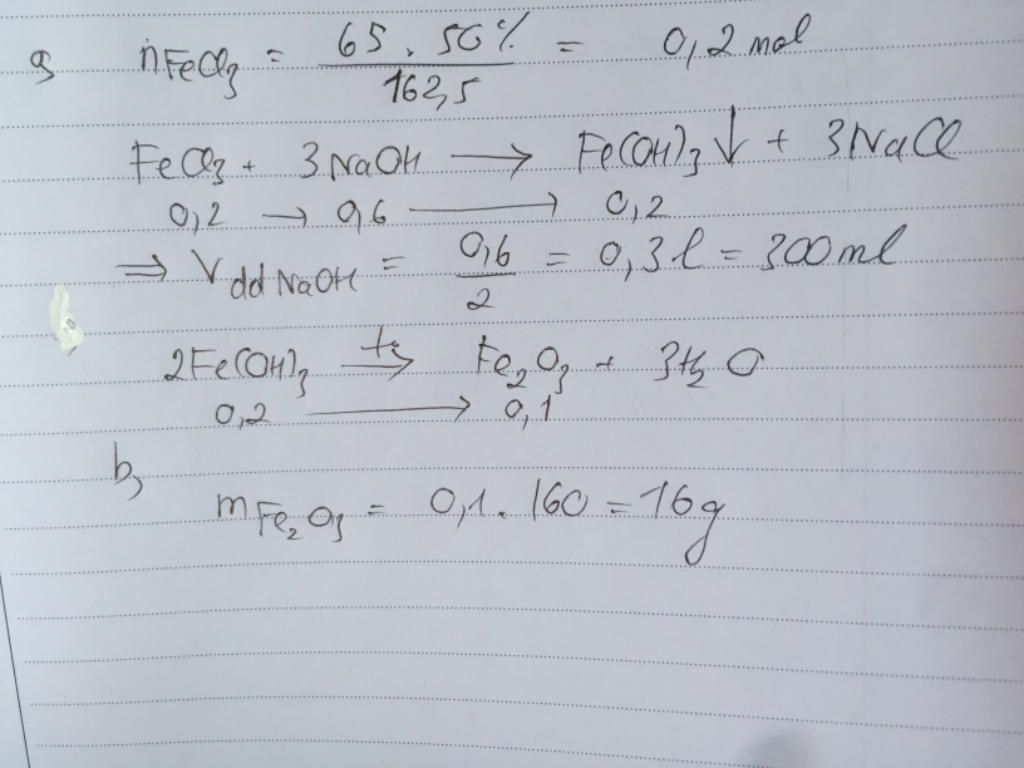 a, nFeCl₃ = (65 . 50%)/(162,5) = 0,2 mol
FeCl₃ + 3NaOH → Fe(OH)₃ ↓ + 3NaCl
0,2 → 0,6 → 0,2
⇒ V dd NaOH = 0,6/2 = 0,3 l = 300 ml
2Fe(OH)₃ →(t°) Fe₂O₃ + 3H₂O
0,2 → 0,1
b,
mFe₂O₃ = 0,1 . 160 = 16g